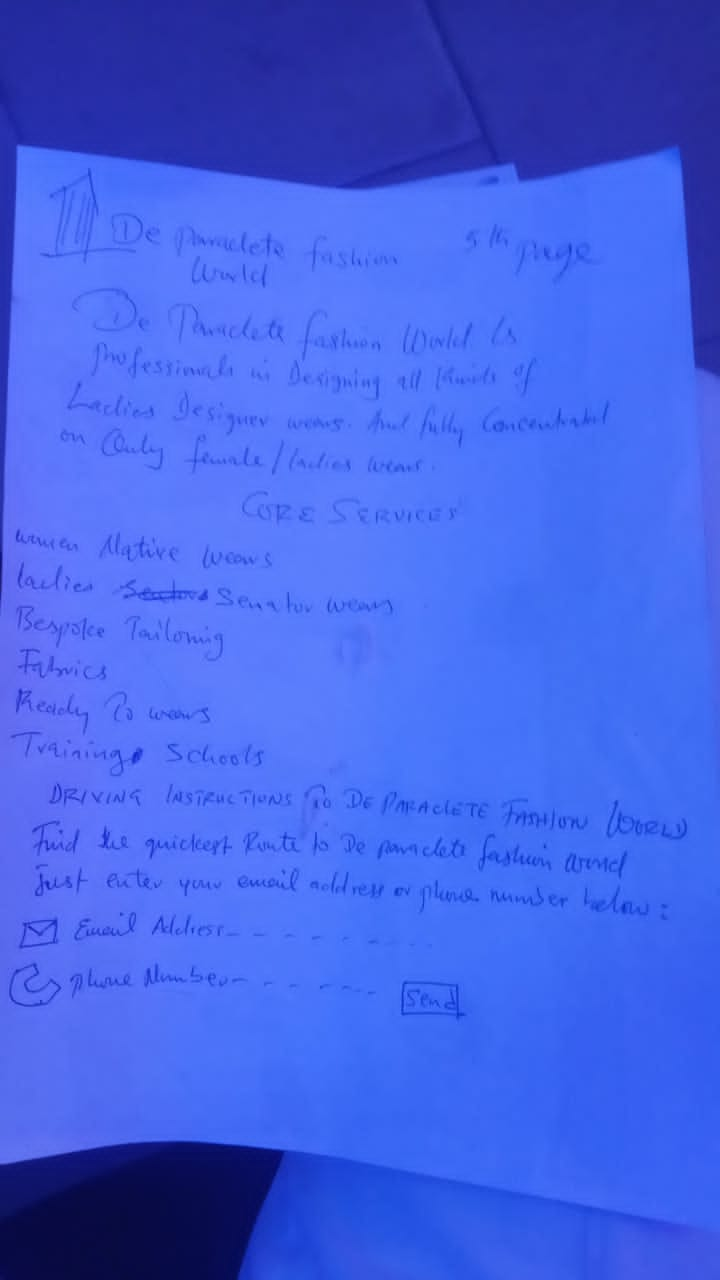 De Paraclete fashion World
5th page
De Paraclete fashion World is
professionals in Designing all kinds of
Ladies Designer wears. And fully Concentrated
on Only female/ladies wears.
CORE SERVICES
women Native wears
ladies Senator wears
Bespoke Tailoring
Fabrics
Ready To wears
Training Schools
DRIVING INSTRUCTIONS TO DE PARACLETE FASHION WORLD
Find the quickest Route to De paraclete fashion world
Just enter your email address or phone number below:
Email Address - - - - - - - - -
phone Number - - - - - - - -
Send